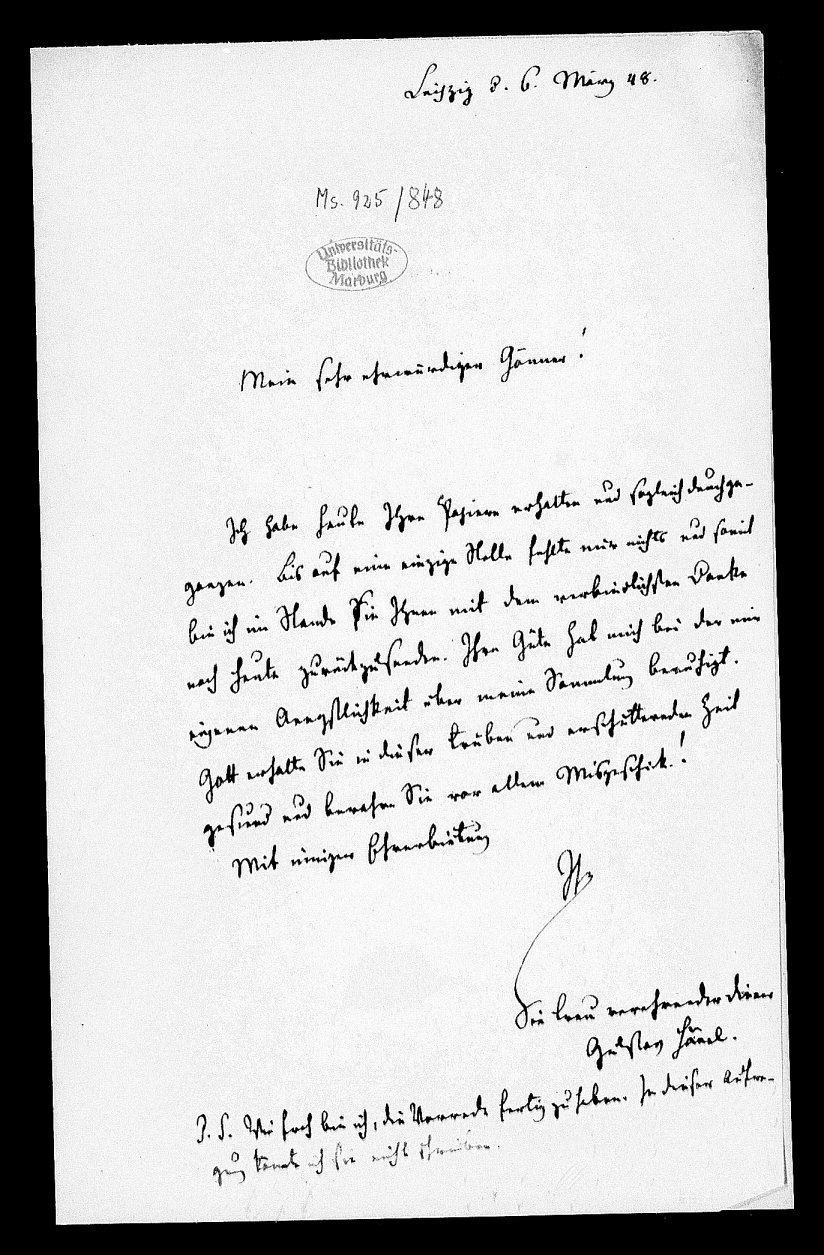 Leipzig d. 6. März 48.
Ms. 925/848
Universitäts-
Bibliothek
Marburg
Mein sehr ehrwürdiger Gönner!
Ich habe heute Ihre Papiere erhalten und sogleich durchge-
gangen. Bis auf eine einzige Stelle fehlte mir nichts und somit
bin ich im Stande Sie Ihnen mit dem verbindlichsten Danke
noch heute zurückzusenden. Ihre Güte hat mich bei der mir
eigenen Aengstlichkeit über meine Sammlung beruhigt.
Gott erhalte Sie in dieser trüben und erschütternden Zeit
gesund und bewahre Sie vor allem Misgeschick!
Mit inniger Ehrerbietung
Ihr
Sie treu verehrender Diener
Gustav Hänel.
P. S. Wie froh bin ich, die Vorrede fertig zu haben. In dieser Aufre-
gung könnte ich sie nicht schreiben.